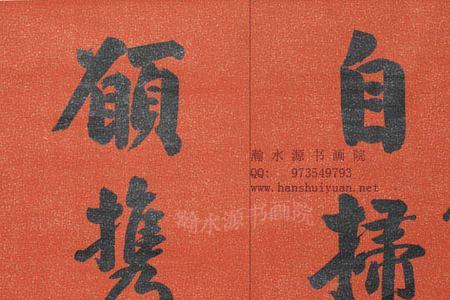 自掃
願携
瀚水源书画院
QQ: 973549793
www.hanshuiyuan.net
瀚水源书画院